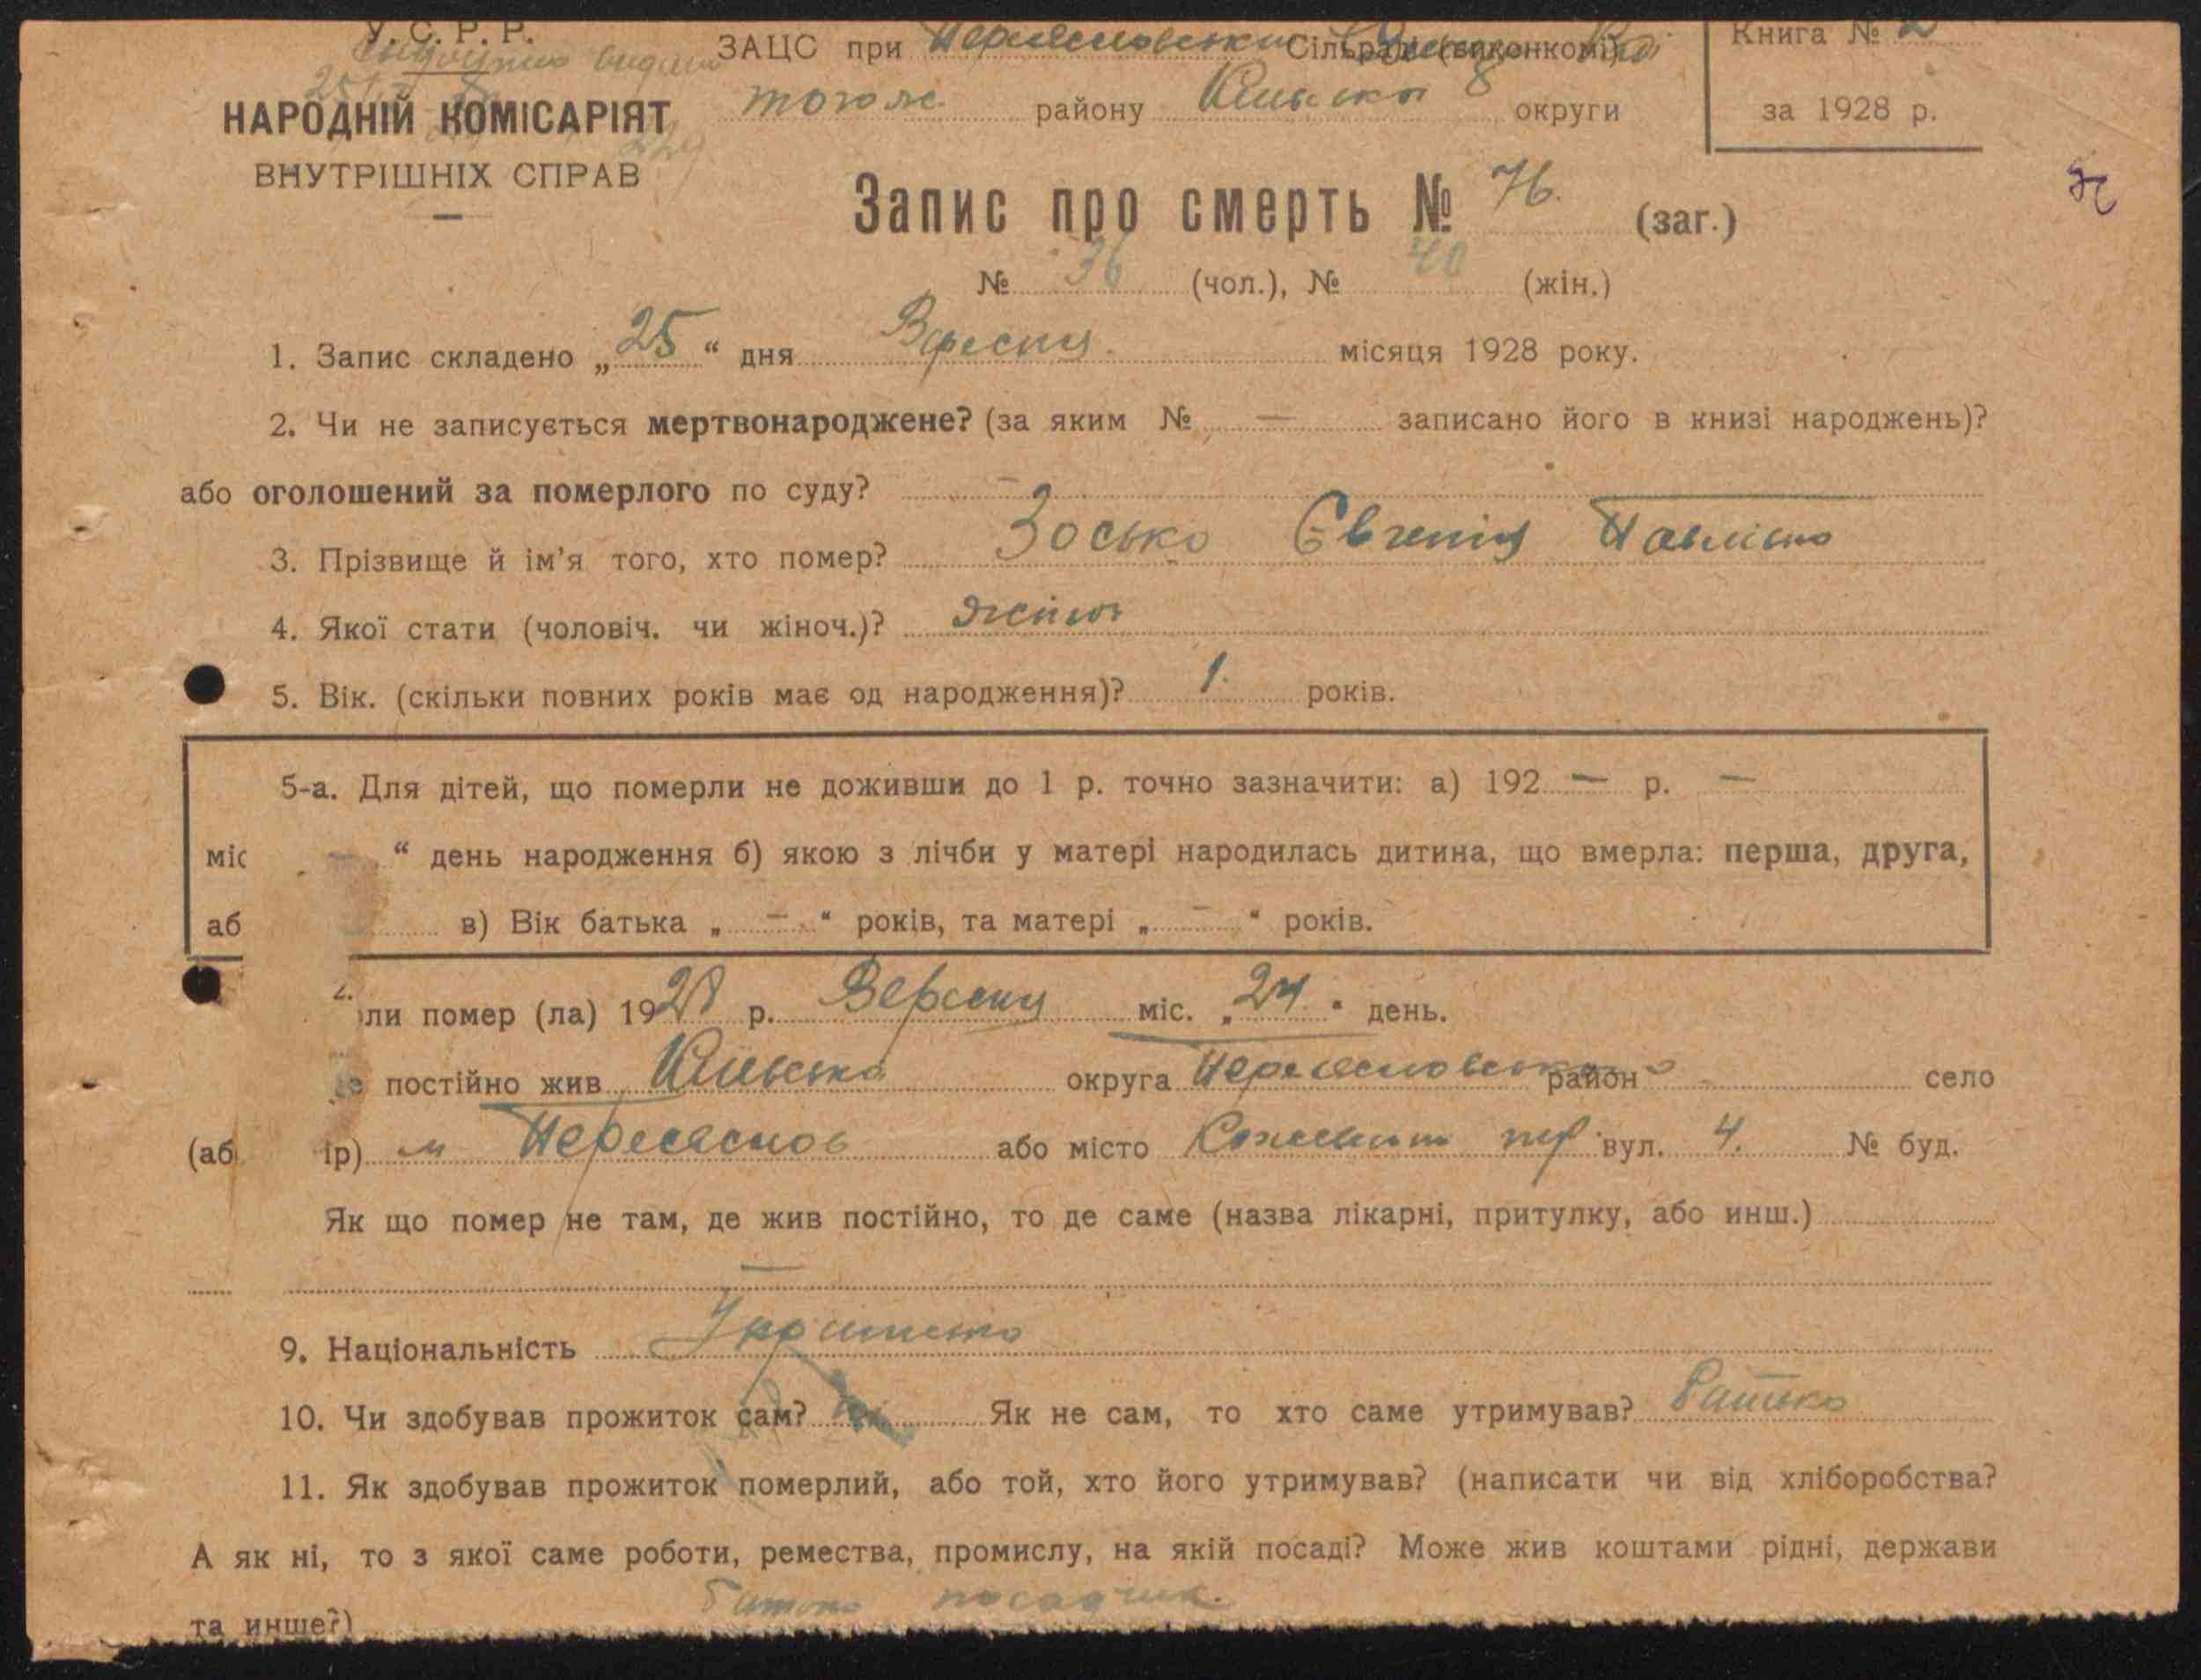 У. С. Р. Р.
НАРОДНІЙ КОМІСАРІЯТ
ВНУТРІШНІХ СПРАВ
ЗАЦС при Сільраді (виконкомі)
того ж району округи
Книга № 2
за 1928 р.
Запис про смерть № 76. (заг.)
№ 36 (чол.), № 40 (жін.)
1. Запис складено „25“ дня Вересня місяця 1928 року.
2. Чи не записується мертвонароджене? (за яким № — записано його в книзі народжень)?
або оголошений за померлого по суду? —
3. Прізвище й ім'я того, хто помер? Зосько Євгенія Павлівна
4. Якої стати (чоловіч. чи жіноч.)? жіноч
5. Вік. (скільки повних років має од народження)? 1. років.
5-а. Для дітей, що померли не доживши до 1 р. точно зазначити: а) 192 — р. —
міс — “ день народження б) якою з лічби у матері народилась дитина, що вмерла: перша, друга,
аб в) Вік батька „ — “ років, та матері „ — “ років.
ли помер (ла) 1928 р. Вересня міс. „24“ день.
постійно жив округа район село
(аб ір) м або місто вул. 4. № буд.
Як що помер не там, де жив постійно, то де саме (назва лікарні, притулку, або инш.)
—
9. Національність Українка
10. Чи здобував прожиток сам? Як не сам, то хто саме утримував? Батько
11. Як здобував прожиток померлий, або той, хто його утримував? (написати чи від хліборобства?
А як ні, то з якої саме роботи, ремества, промислу, на якій посаді? Може жив коштами рідні, держави
та инше?)